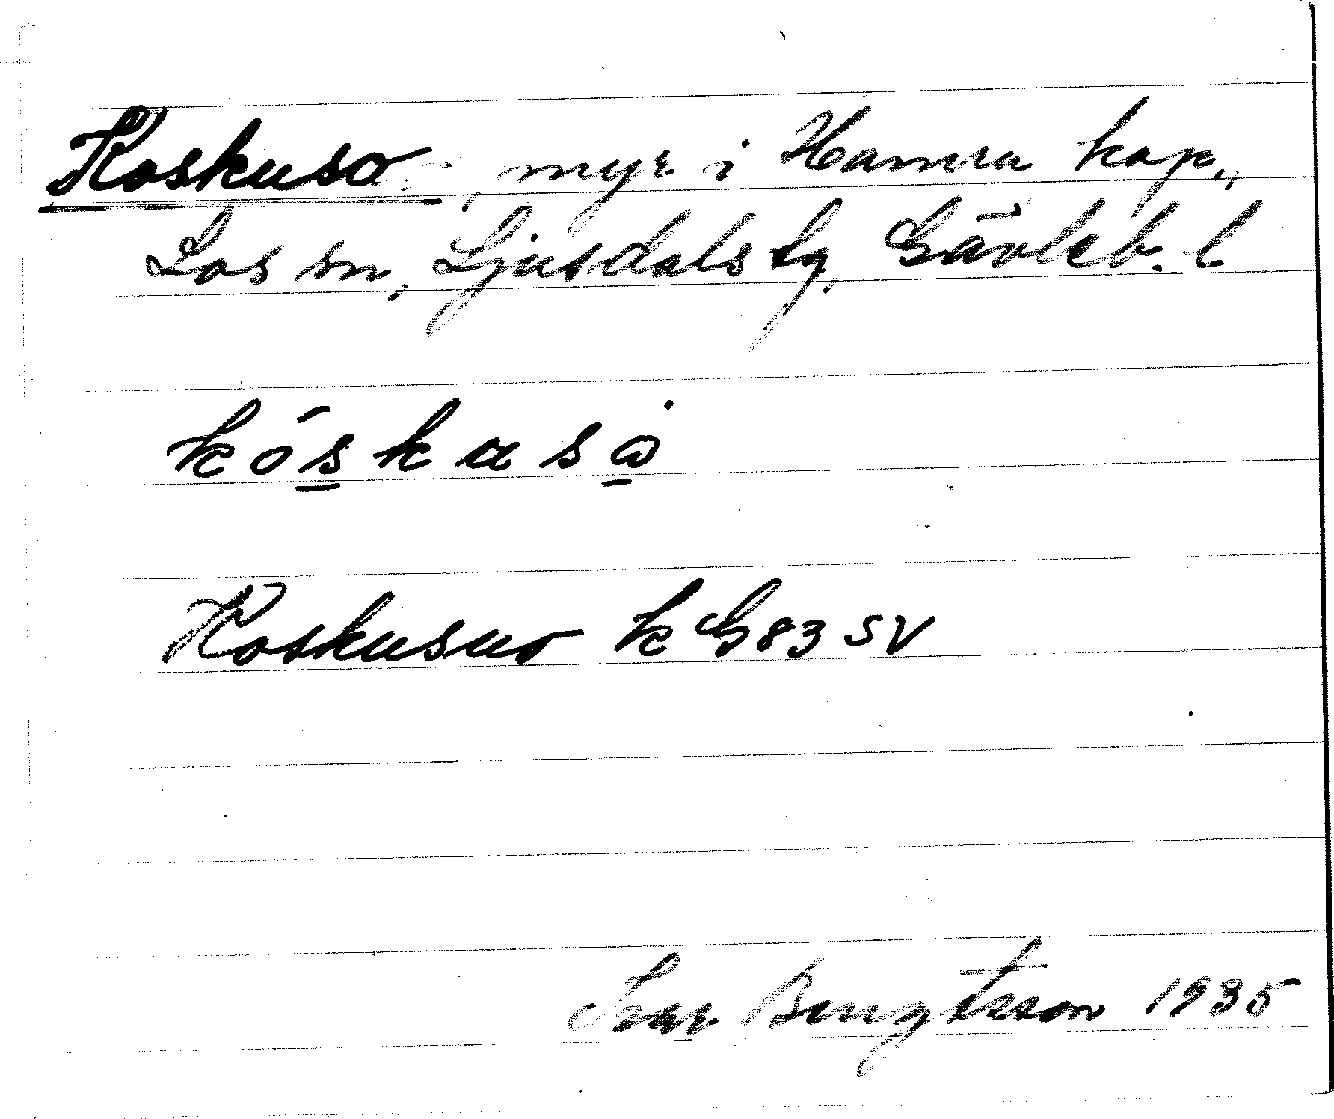 Koskuso, myr i Hamra kap.,
Los sn, Ljusdals tg, Gävleb. l
kóskusω̇
Koskusuo k G83 SV
Ivar Bengtsson 1935